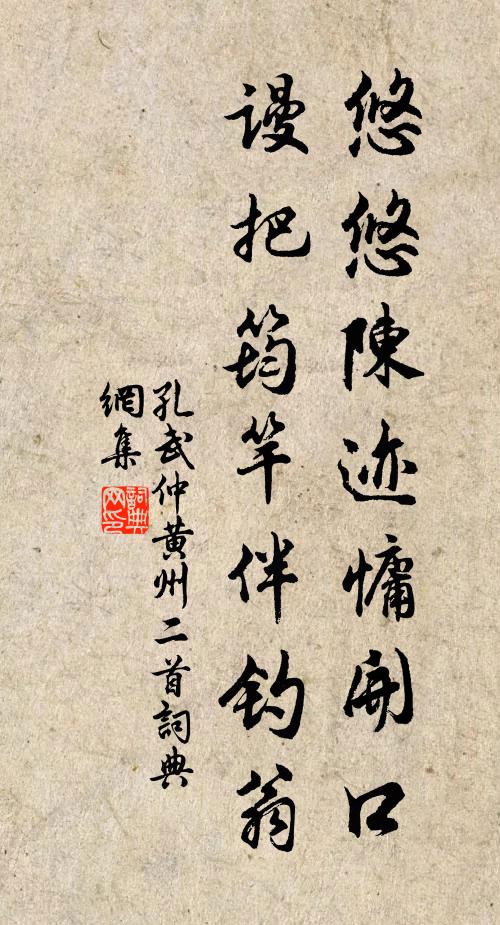 悠悠陳迹慵開口
謾把筠竿伴釣翁
孔武仲黄州二首詞典
網集
詞典网印